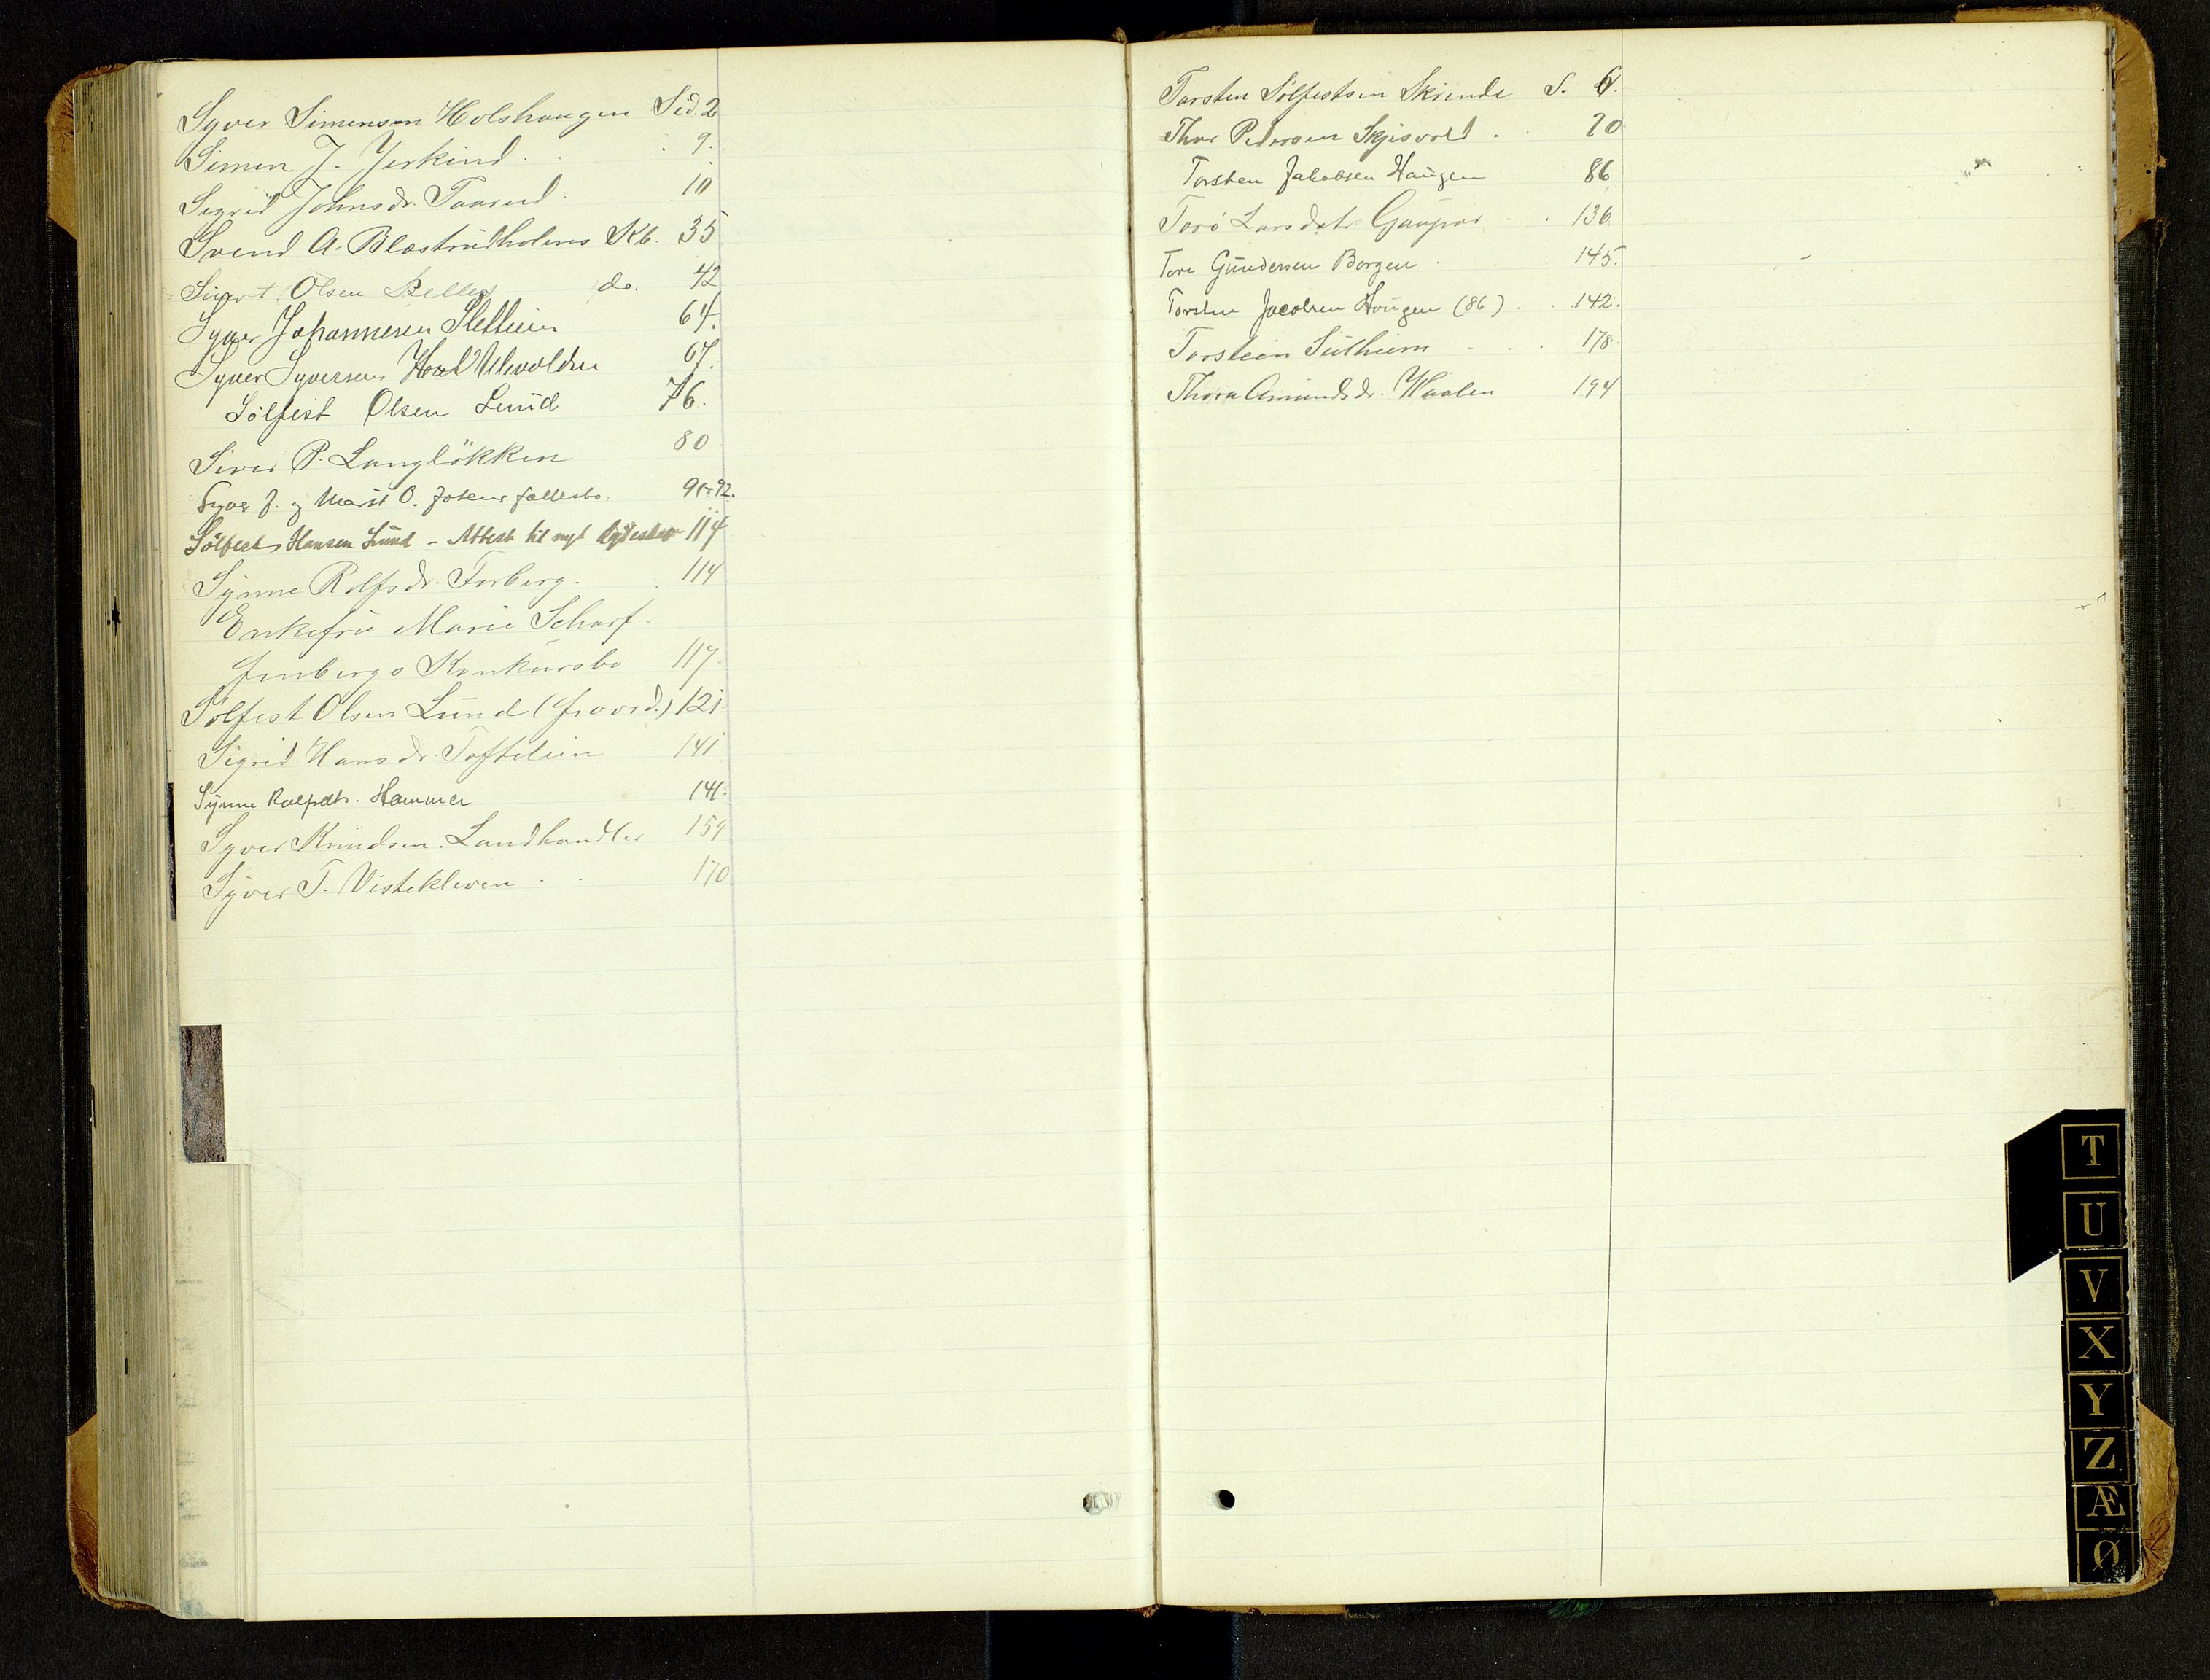 Syver Simensen Holshaugen Sid. 2
Simen J. Jerkind . . . 9.
Sigrid Johnsdr. Taarud . 10
Svend A. Blæstrudholens Kb. 35
Sivert Olsen Belle do. 42
Syver Johannesen Sletteien 64.
Syver Syversen Ulvolden 67.
Sølfest Olsen Lund 76.
Siver P. Langløkken 80
Syver J. og Marit O. fællesbo. 91 92.
Sølfest Hansen Lund - Attest til nyt 114
Synne Rolfsdr. Forberg. 114
Enkefru Marie Scharf-
fenbergs Konkursbo 117
Sølfest Olsen Lund ( ) 121.
Sigrid Hansdr. Toftelien 141
Synne Rolfsdtr. Hammer 141.
Syver Knudsen. Landhandler 159
Syver T. Vistekleven . . 170
Torsten Sølfestsen Skrinde S. 6.
Thor Pedersen Skjisvold . . 70
Torsten Jakobsen Haugen 86
Toro Larsdatr Gaupar . . 136
Tore Gundersen Borgen . . 145.
Torsten Jacobsen Hougen (86) . . 142.
Torstein Sutheim . . . 178.
Thora Amundsdr. Waalen 194
T
U
V
X
Y
Z
Æ
Ø